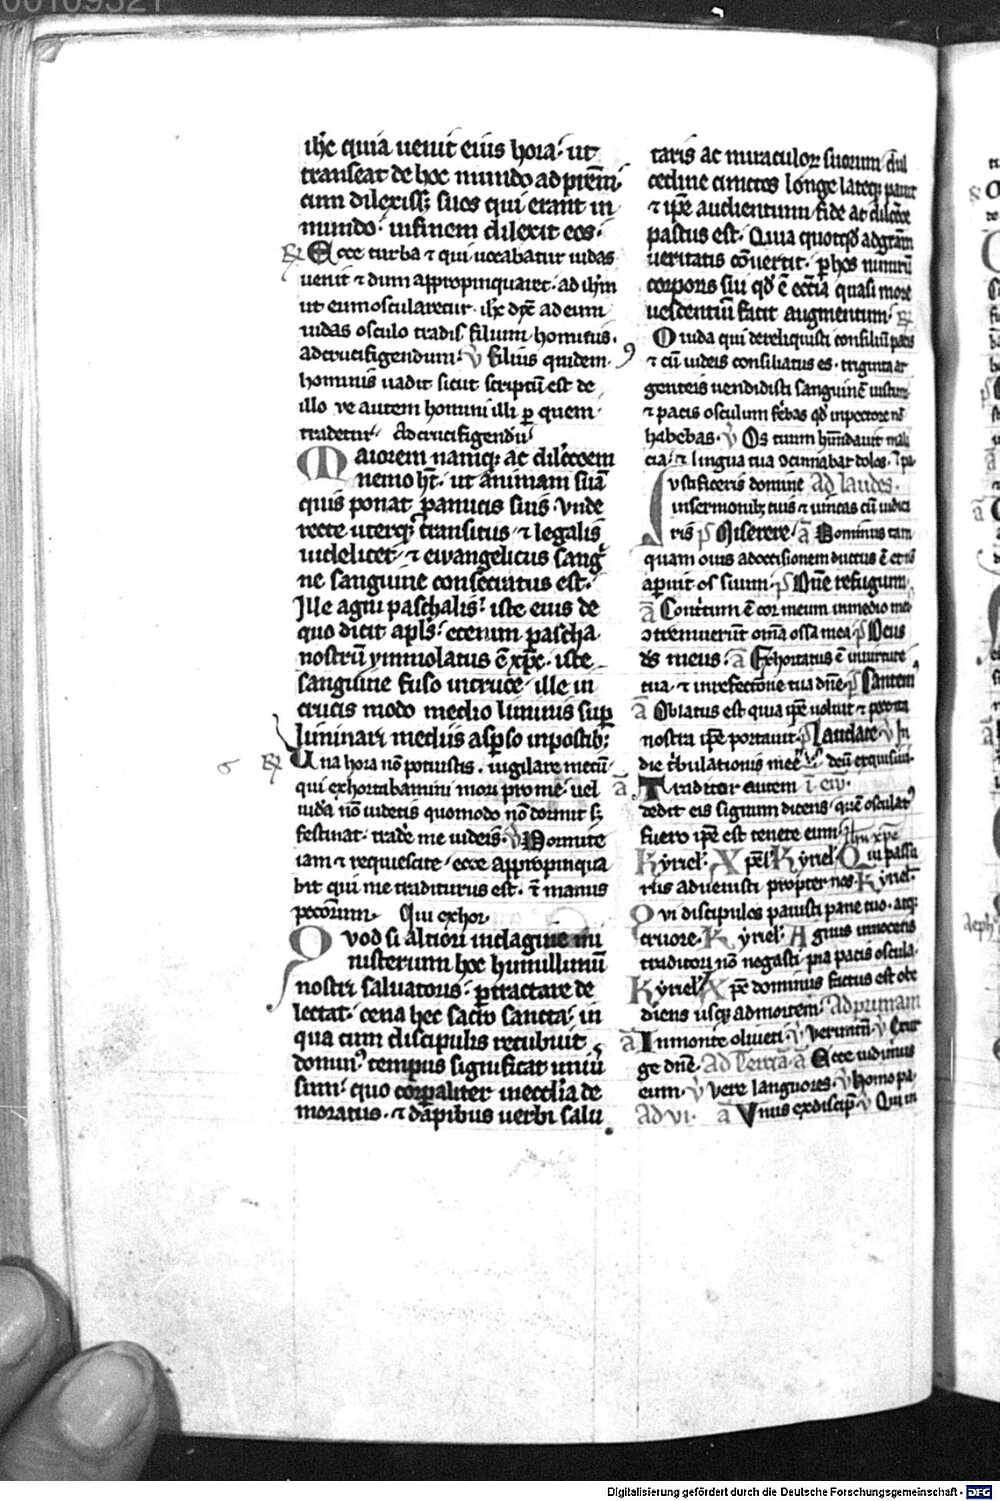 ih̅c quia uenit eius hora. ut
transeat de hoc mundo ad prem.
cum dilexiss; suos qui erant in
mundo. infinem dilexit eos.
R̷ Ecce turba ⁊ qui uocabatur iudas
uenit ⁊ dum appropinquaret. ad ih̅m
ut eum oscularetur. ih̅c dx̅e ad eum
iudas osculo tradis filium hominis.
ad crucifigendum. v̷ filius quidem.
hominis uadit sicut scriptū est de
illo ve autem homini illi ꝑ quem
tradetur Ad crucifigendū
Maiorem namq; ac dilc̅oem
nemo h̅t. ut animam suā
quis ponat ꝑ amicis suis. Vnde
recte uterq; transitus ⁊ legalis
uidelicet. ⁊ ewangelicus sang
ne sanguine consecratus est.
Ille agni paschalis. iste eius de
quo dicit apl̅s. etenim pascha
nostrū ymmolatus ē xp̅c. iste
sanguine fuso in cruce. ille in
crucis modo medio liminis sup̅
liminari mediis asp̅so in postib;
R̷ Una hora nō potuistis. uigilare mecū
qui exhortabamini mori pro me. uel
iuda nō uidetis quomodo nō dormit s;
festinat. tradere me iudeis. v̷ Dormite
iam ⁊ requiescite. ecce appropinqua
bit qui me traditurus est. ī manus
pecc̅orum. Qui exhor.
Quod si altiori indagine mi
nisterium hoc humillimū
nostri saluatoris. ꝑtractare de
lectat. cena hec sacro sancta. in
qua cum discipulis recubuit
dominꝰ tempus significat uniū
sum. quo corꝑaliter in ecc̅lia de
moratus. ⁊ dapibus uerbi salu
taris ac miraculoꝝ suorum dul
cedine cunctos longe lateq; pauit
⁊ ip̅e audientium fide ac dilc̅oe
pastus est. Quia quotqd̅ ad gr̅am
ueritatis cōuertit. ꝑ hos nimirū
corporis sui qd̅ ē ecc̅ia quasi more
uescentiū facit augmentum. R̷
O iuda qui dereliquisti consiliū pacis
⁊ cū iudeis consiliatus es. triginta ar
genteis uendidisti sanguinē iustum
⁊ pacis osculum ferebas qd̅ in pectore nō
habebas. v̷ Os tuum habundauit mali
cia. ⁊ lingua tua ↄcinnabat dolos.
Iustificeris domine Ad laudes.
in sermonib; tuis ⁊ uincas cū iudica
ris p̅s Miserere. a̅ Dominus tam
quam ouis ad occisionem ductus ē ⁊ nō
aperuit os suum. p̅s Dn̅e refugium.
a̅ Contritum ē cor meum in medio mei
ↄtremuerūt om̅ia ossa mea. p̅s Deus
d̅s meus. a̅ Exhortatus ē in uirtute
tua. ⁊ in refectione tua dn̅e. p̅s Cantem
a̅ Oblatus est quia ip̅e uoluit ⁊ peccata
nostra ip̅e portauit. p̅s Laudate. v̷ In
die tribulationis mee deū exquisiui.
a̅ Traditor autem i̅ eu̅.
dedit eis signum dicens. quē osculatꝰ
fuero ip̅e est tenete eum.
Kyriel. Xp̅el. Kyriel. Qui passu
rus aduenisti propter nos. Kyriel.
Qui discipulos pauisti pane tuo. atq;
cruore. Kyriel. Agnus innocens
traditori nō negasti pia pacis oscula.
Kyriel. Xp̅e dominus factus est obe
diens usq; ad mortem. Ad primam
a̅ In monte oliueti. v̷ Verumtn̅. v̷ Exur
ge dn̅e. Ad terciā. a̅ Ecce uidimus
eum. v̷ vere languores. v̷ homo pa.
Ad vi. a̅ Vnus ex discip̅. v̷ Qui in
Digitalisierung gefördert durch die Deutsche Forschungsgemeinschaft - DFG